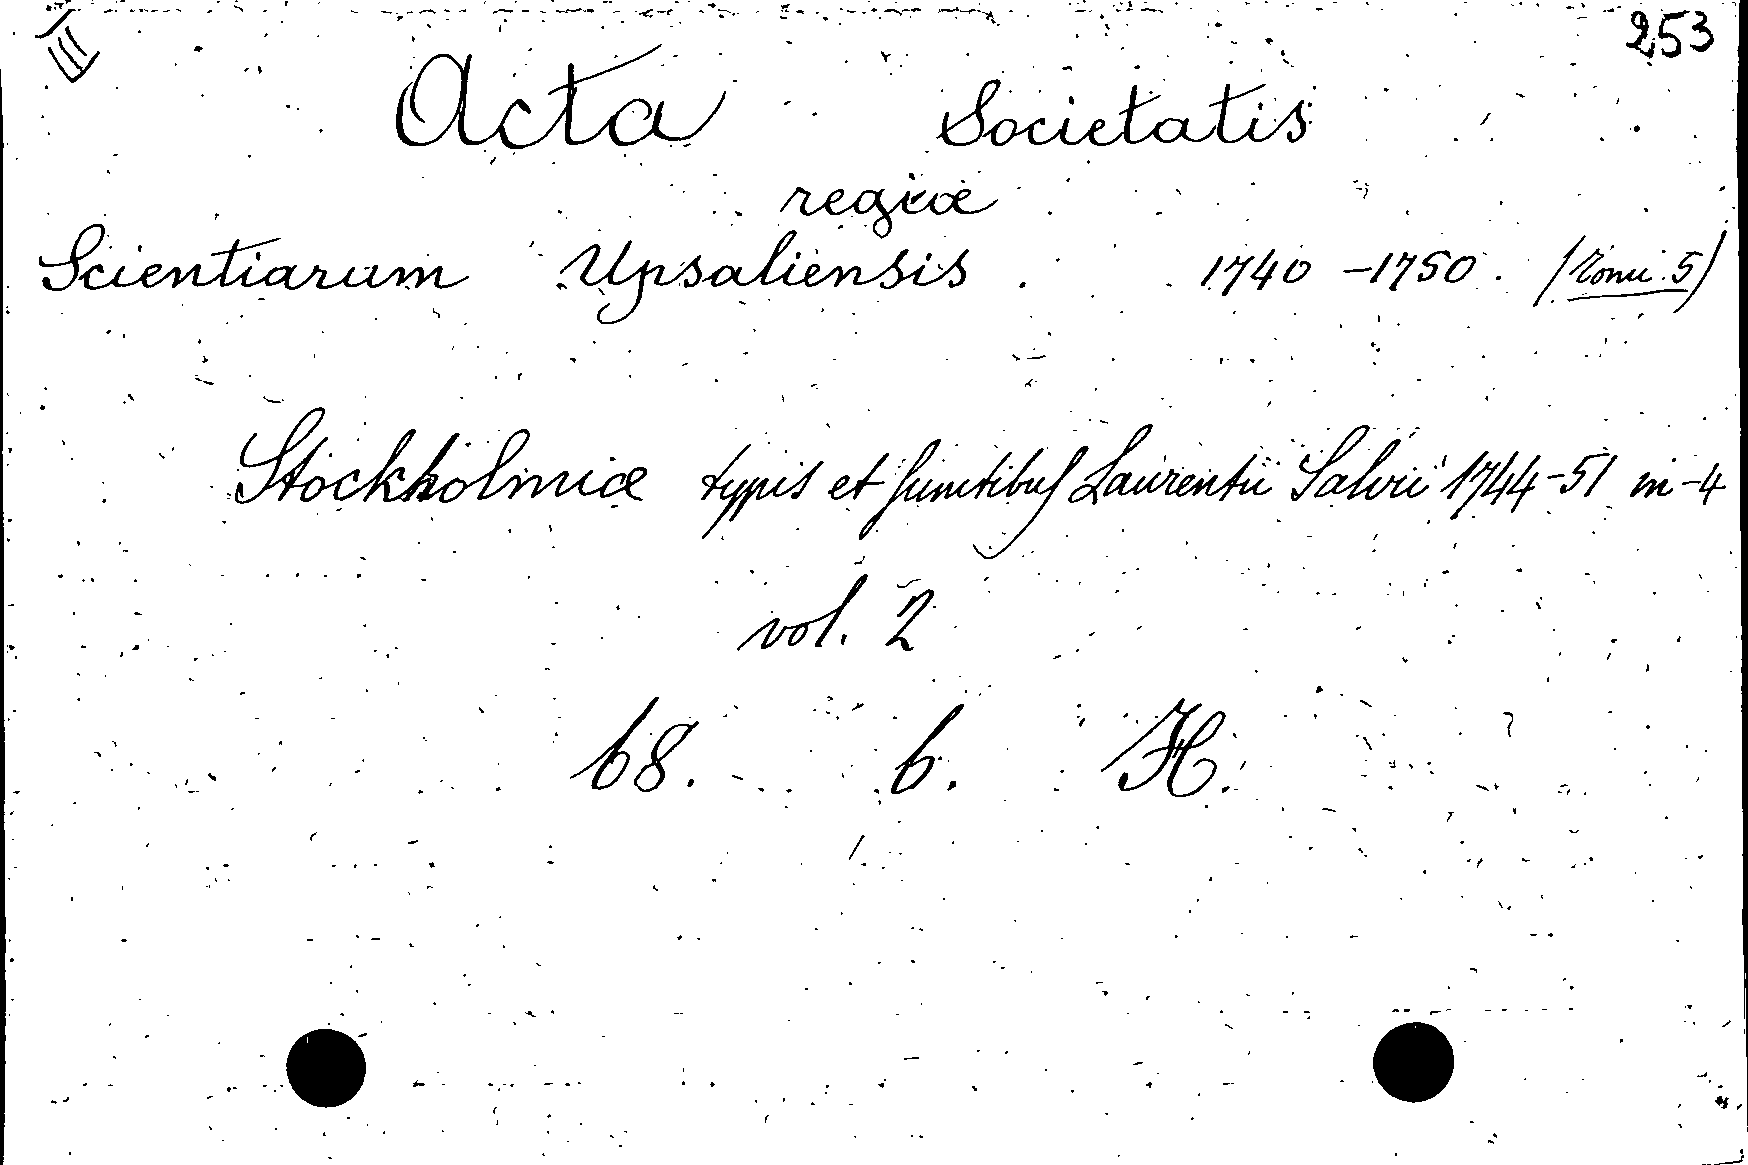 III 253
Acta Societatis
regiæ
Scientiarum Upsaliensis. 1740-1750. (Tomi 5)
Stockholmiæ typis et sumtibus Laurentii Salvii 1744-51 in-4
vol. 2
68. 6. H.